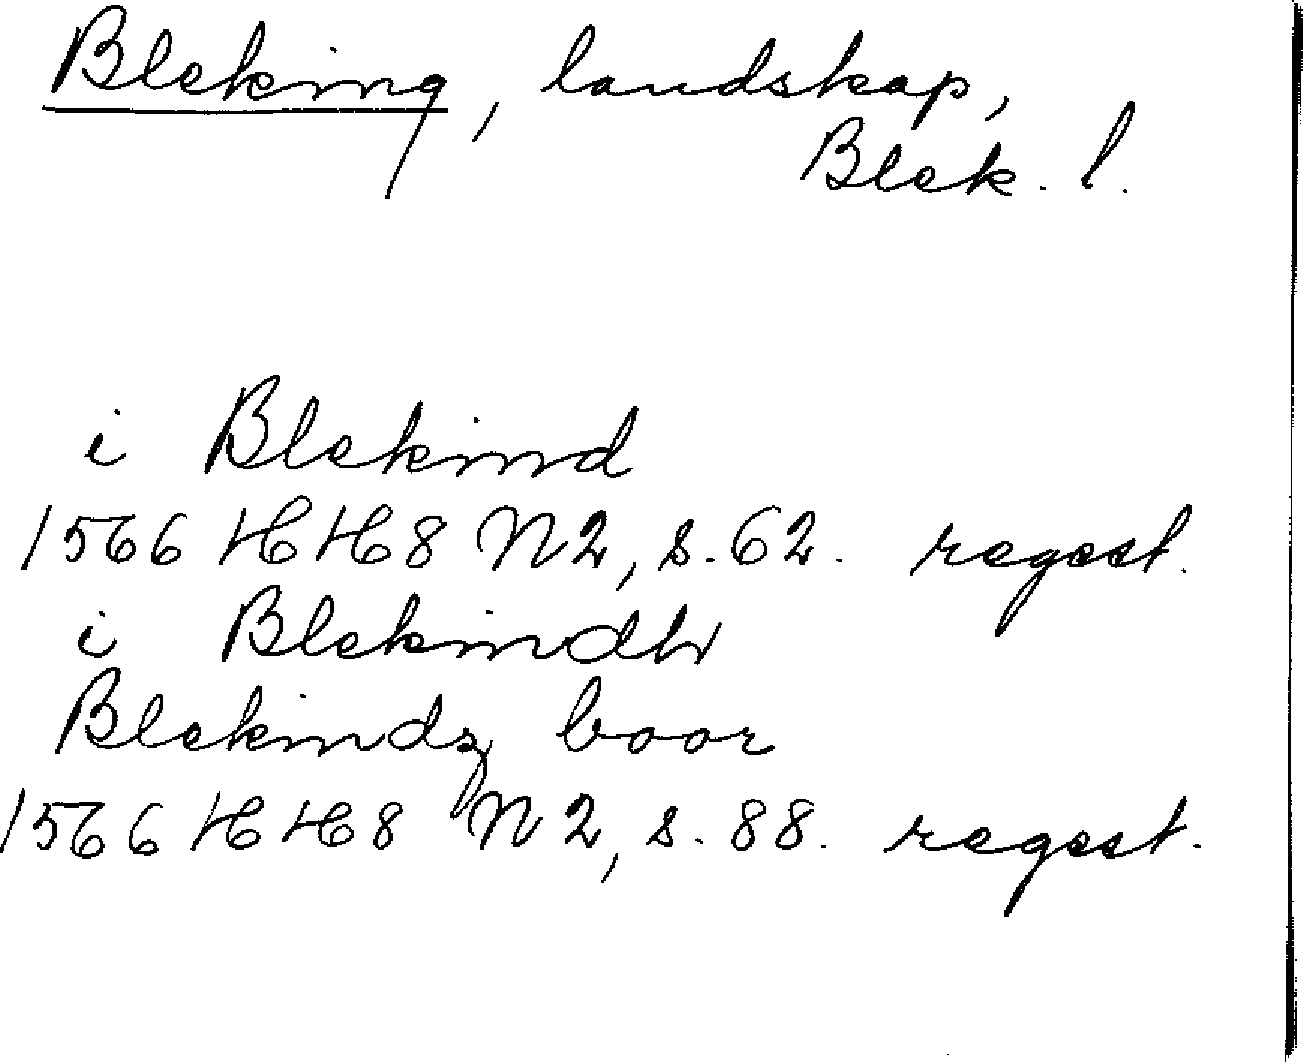 Bleking, landskap,
Blek. l.
i Blekind
1566 HH8 N2, s. 62. regest.
i Blekindh
Blekindz boor
1566 HH8 N2, s. 88. regest.